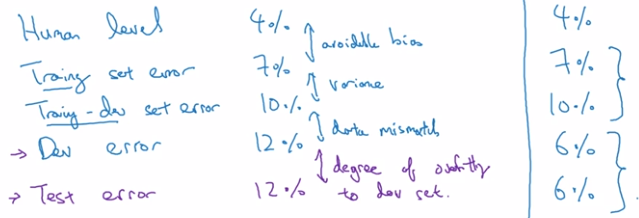 Human level 4% 4%
↕ avoidable bias
Training set error 7% 7%
↕ variance
Training-dev set error 10% 10%
↕ data mismatch
→ Dev error 12% 6%
↕ degree of overfitting
to dev set.
→ Test error 12% 6%